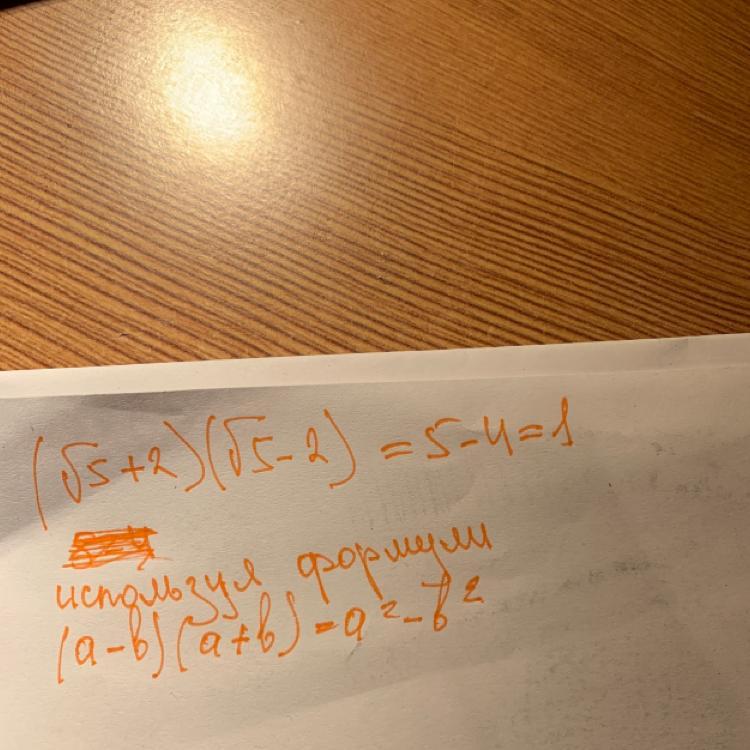 (√5+2)(√5-2) = 5-4=1
используя формули
(a-b)(a+b)=a²-b²